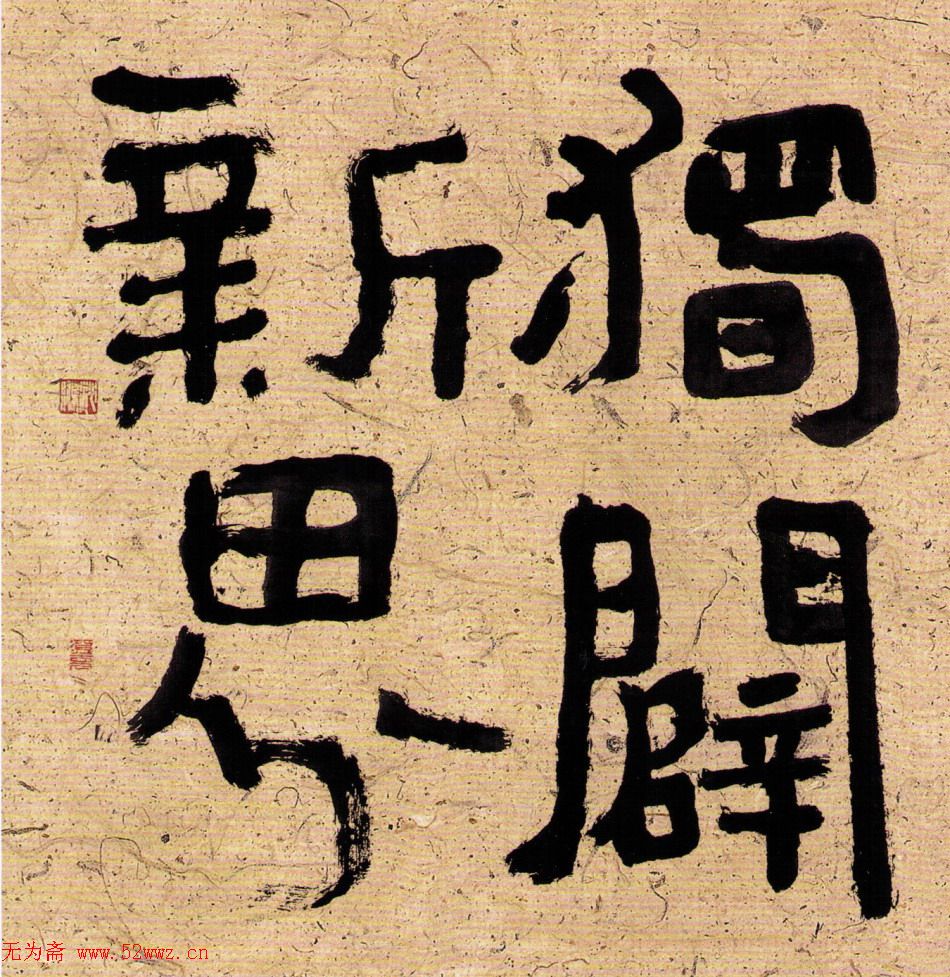 獨闢
新界
无为斋 www.52wwz.cn